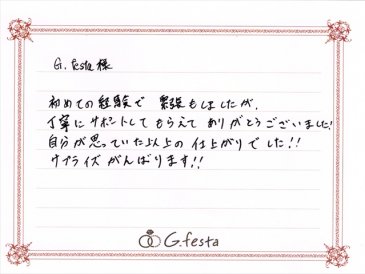 G.festa様
初めての経験で 緊張もしましたが、
丁寧にサポートしてもらえて ありがとうございました!
自分が思っていた以上の 仕上がりでした!!
サプライズ がんばります!!
G.festa